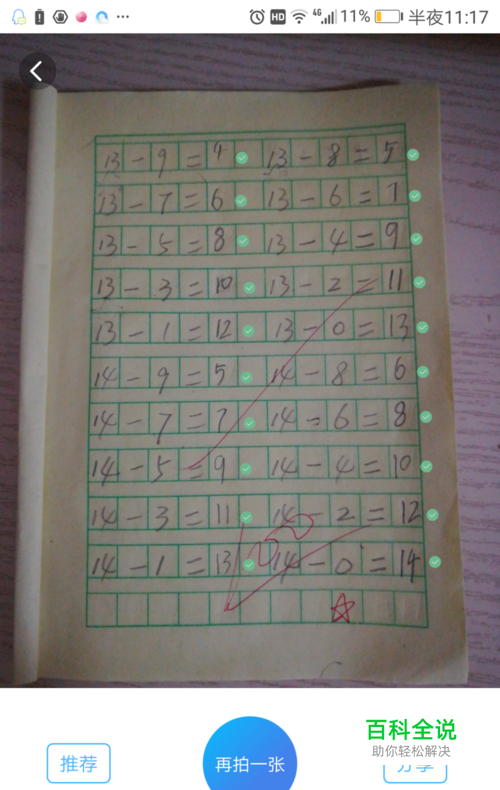 HD 4G 11% 半夜11:17
13-9=4 13-8=5
13-7=6 13-6=7
13-5=8 13-4=9
13-3=10 13-2=11
13-1=12 13-0=13
14-9=5 14-8=6
14-7=7 14-6=8
14-5=9 14-4=10
14-3=11 14-2=12
14-1=13 14-0=14
推荐 再拍一张 分享
百科全说
助你轻松解决